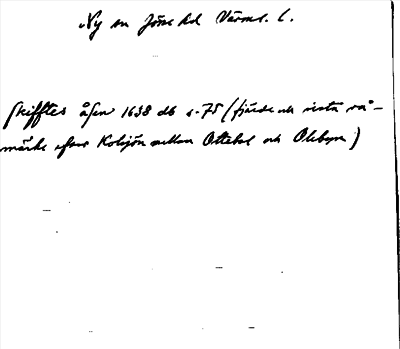 Ny sn Jösse hd Värml. l.
skifftes åsen 1638 db s. 75 (fjärde och sista rå-
märke efter Kolsjön mellan Ottebol och Olebyn)